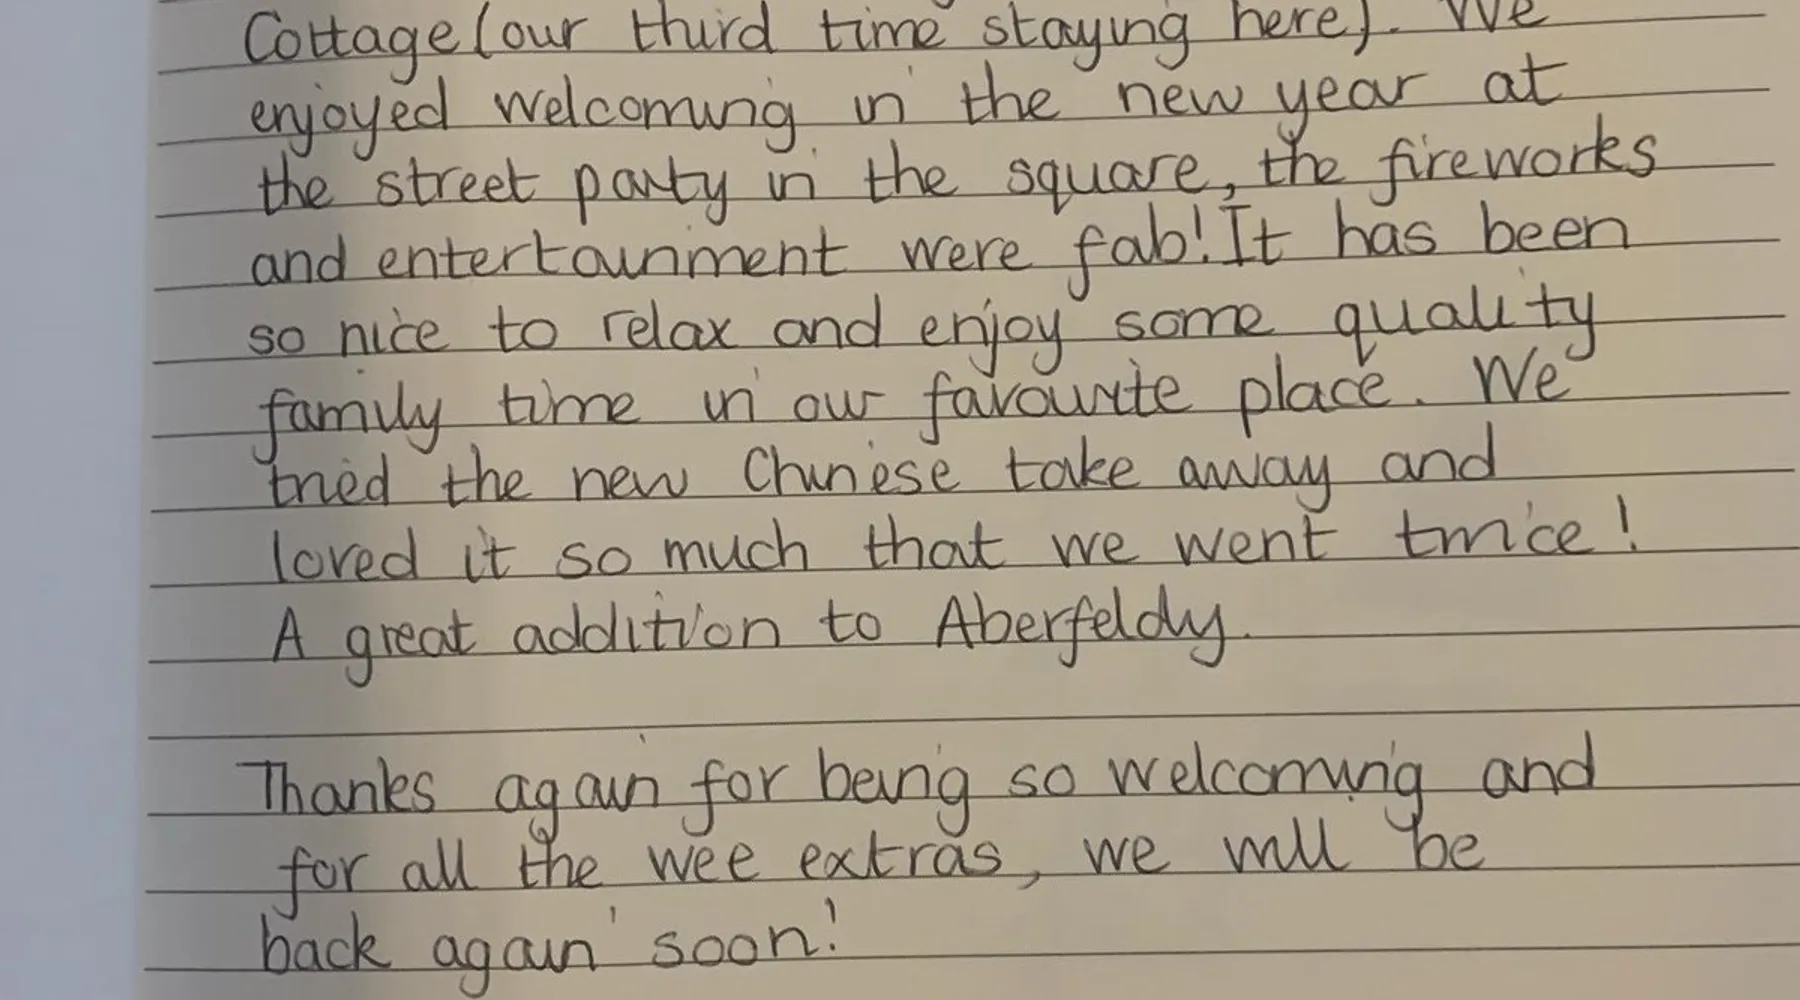 Cottage (our third time staying here). We
enjoyed welcoming in the new year at
the street party in the square, the fireworks
and entertainment were fab! It has been
so nice to relax and enjoy some quality
family time in our favourite place. We
tried the new Chinese take away and
loved it so much that we went twice!
A great addition to Aberfeldy.
Thanks again for being so welcoming and
for all the wee extras, we will be
back again soon!